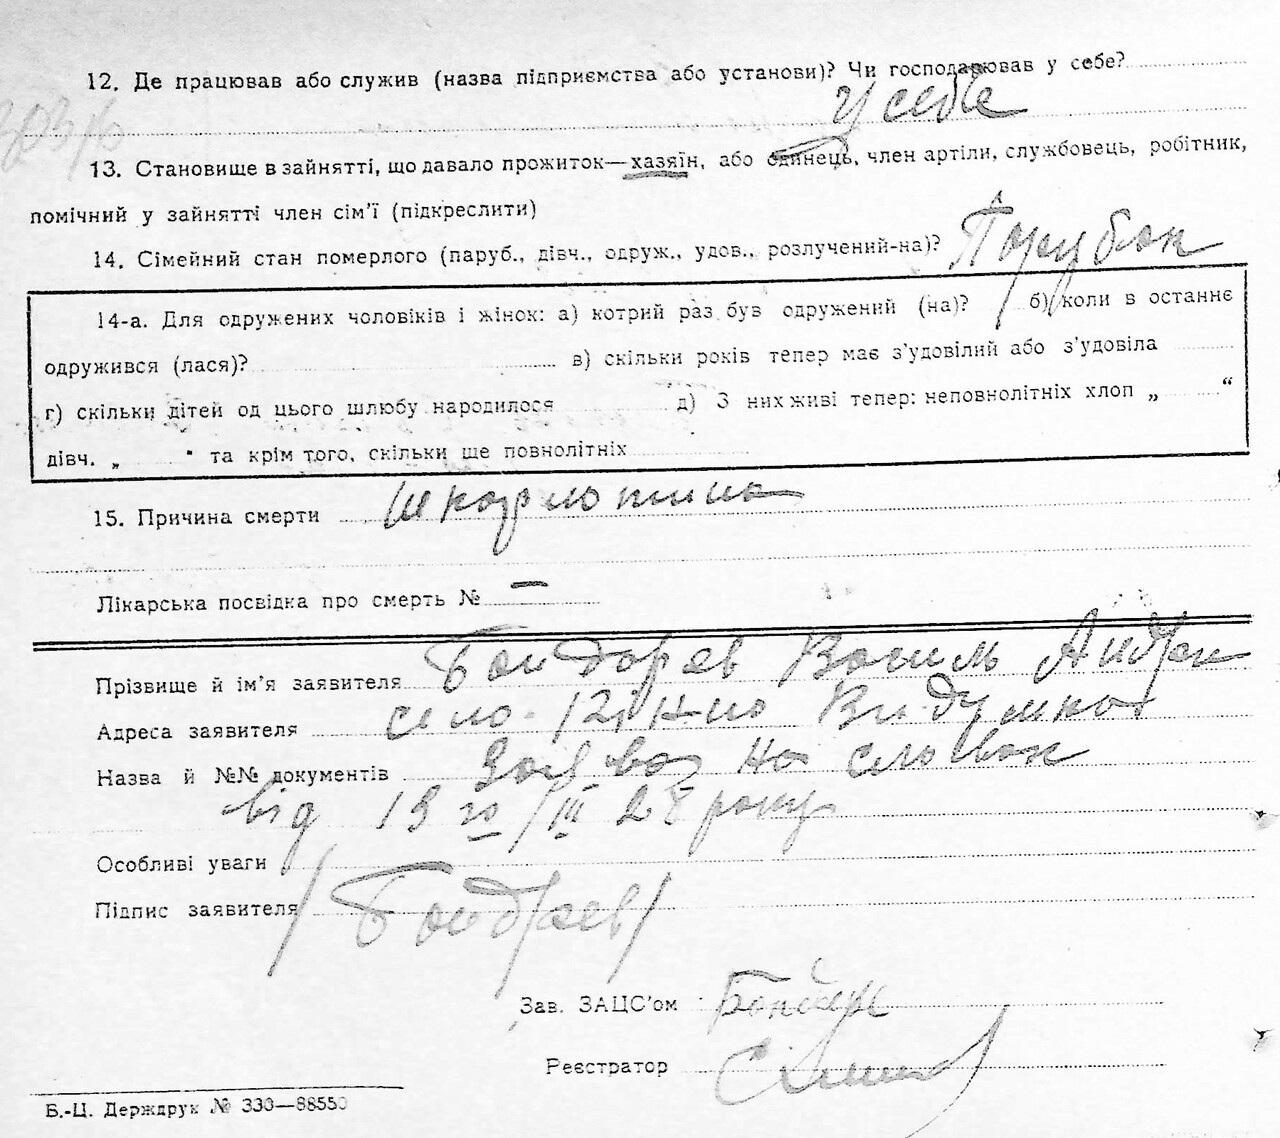 12. Де працював або служив (назва підприємства або установи)? Чи господарював у себе?
У себе
13. Становище в зайнятті, що давало прожиток—хазяїн, або одинець, член артіли, службовець, робітник,
помічний у зайнятті член сім'ї (підкреслити)
14. Сімейний стан померлого (паруб., дівч., одруж., удов., розлучений-на)? Парубок
14-а. Для одружених чоловіків і жінок: а) котрий раз був одружений (на)? б) коли в останнє
одружився (лася)? в) скільки років тепер має з'удовілий або з'удовіла
г) скільки дітей од цього шлюбу народилося д) З них живі тепер: неповнолітніх хлоп „ “
дівч. „ “ та крім того, скільки ще повнолітніх
15. Причина смерти Шкарлотина
Лікарська посвідка про смерть № —
Прізвище й ім'я заявителя Бондарев Василь Андр
Адреса заявителя село Видумка
Назва й №№ документів Заява на словах
від 19 го/III 28 року
Особливі уваги
Підпис заявителя /Бондрев/
Зав. ЗАЦС'ом
Реєстратор
Б.-Ц. Держдрук № 330—88550